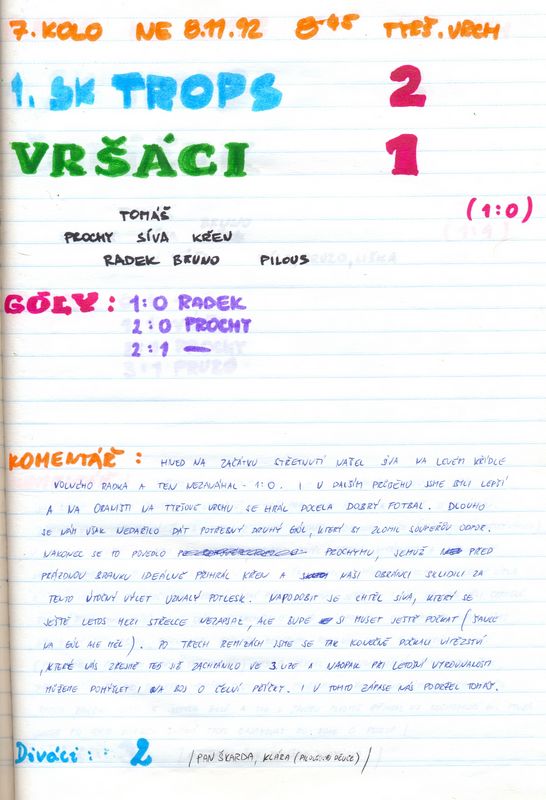 7. KOLO NE 8.11.92 8-45 TYRŠ. VRCH
1. SK TROPS 2
VRŠÁCI 1
(1:0)
TOMÁŠ
PROCHY SÍVA KŘEN
RADEK BRUNO PILOUS
GÓLY: 1:0 RADEK
2:0 PROCHY
2:1 —
KOMENTÁŘ: HNED NA ZAČÁTKU STŘETNUTÍ NAŠEL SÍVA NA LEVÉM KŘÍDLE
VOLNÉHO RADKA A TEN NEZAVÁHAL - 1:0. I V DALŠÍM PRŮBĚHU JSME BYLI LEPŠÍ
A NA ORANIŠTI NA TYRŠOVĚ VRCHU SE HRÁL DOCELA DOBRÝ FOTBAL. DLOUHO
SE NÁM VŠAK NEDAŘILO DÁT POTŘEBNÝ DRUHÝ GÓL, KTERÝ BY ZLOMIL SOUPEŘŮV ODPOR.
NAKONEC SE TO POVEDLO PROCHYMU, JEMUŽ PŘED
PRÁZDNOU BRANKU IDEÁLNĚ PŘIHRÁL KŘEN A NAŠI OBRÁNCI SKLIDILI ZA
TENTO ÚTOČNÝ VÝLET UZNALÝ POTLESK. NAPODOBIT SE CHTĚL SÍVA, KTERÝ SE
JEŠTĚ LETOS MEZI STŘELCE NEZAPSAL, ALE BUDE SI MUSET JEŠTĚ POČKAT (ŠANCE
NA GÓL ALE MĚL). PO TŘECH REMÍZÁCH JSME SE TAK KONEČNĚ DOČKALI VÍTĚZSTVÍ
, KTERÉ NÁS ZŘEJMĚ TEĎ JIŽ ZACHRÁNILO VE 3. LIZE A NAOPAK PŘI LETOŠNÍ VYROVNANOSTI
MŮŽEME POMÝŠLET I NA BOJ O ČELNÍ PŘÍČKY. I V TOMTO ZÁPASE NÁS PODRŽEL TOMÁŠ.
Diváci: 2 (PAN ŠKARDA, KLÁRA